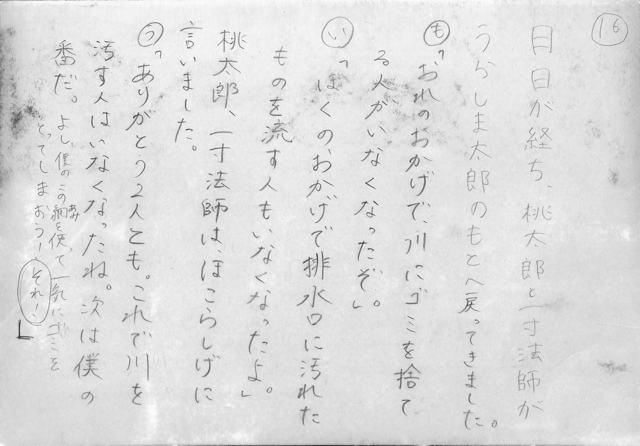 16
月日が経ち、桃太郎と一寸法師が
うらしま太郎のもとへ戻ってきました。
も「おれのおかげで、川にゴミを捨て
る人がいなくなったぞ」。
い「ぼくのおかげで排水口に汚れた
ものを流す人もいなくなったよ。」
桃太郎、一寸法師は、ほこらしげに
言いました。
う「ありがとう2人とも。これで川を
汚す人はいなくなったね。次は僕の
番だ。よし、僕のこの網を使って一気にゴミを
あみ
とってしまおう！それ！」